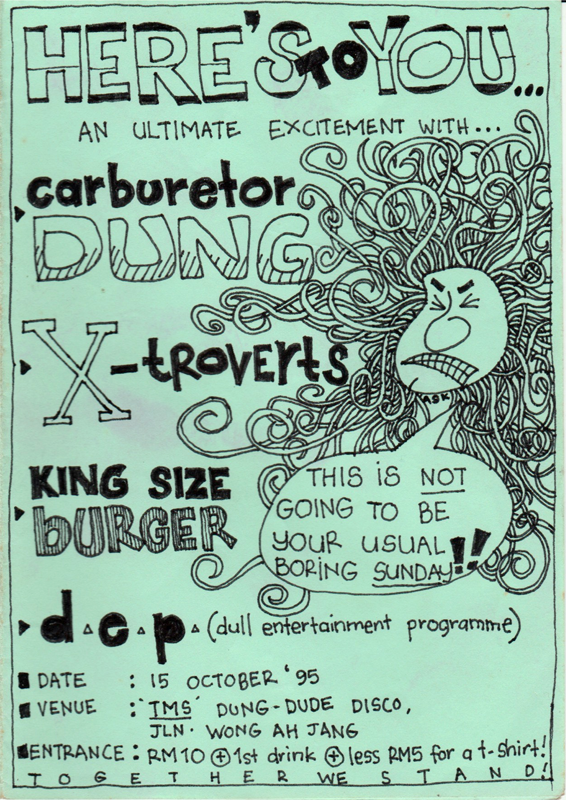 HERE'S TO YOU...
AN ULTIMATE EXCITEMENT WITH...
carburetor
DUNG
X-troverts
KING SIZE
BURGER
d.e.p. (dull entertainment programme)
ASK
THIS IS NOT
GOING TO BE
YOUR USUAL
BORING SUNDAY!!
DATE : 15 OCTOBER '95
VENUE : 'TMS' DUNG-DUDE DISCO,
JLN. WONG AH JANG
ENTRANCE : RM10 + 1st drink + less RM5 for a t-shirt!
TOGETHER WE STAND!